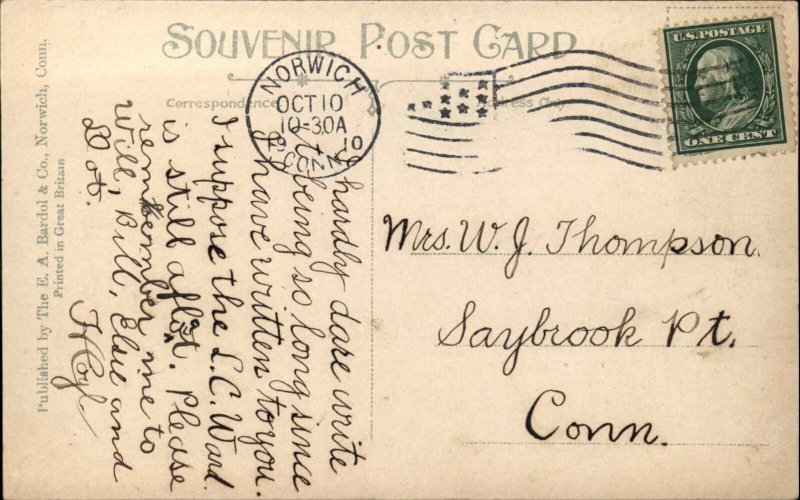 SOUVENIR POST CARD
Correspondence
ress Only
NORWICH
OCT 10
10-30A
10
CONN.
U.S. POSTAGE
ONE CENT
I hardly dare write
it being so long since
I have written to you.
I suppose the L.C. Ward
is still afloat. Please
remember me to
Will, Bill, Elsie and
Dot.
Mrs. W. J. Thompson
Saybrook Pt.
Conn.
Published by The E. A. Bardol & Co., Norwich, Conn.
Printed in Great Britain